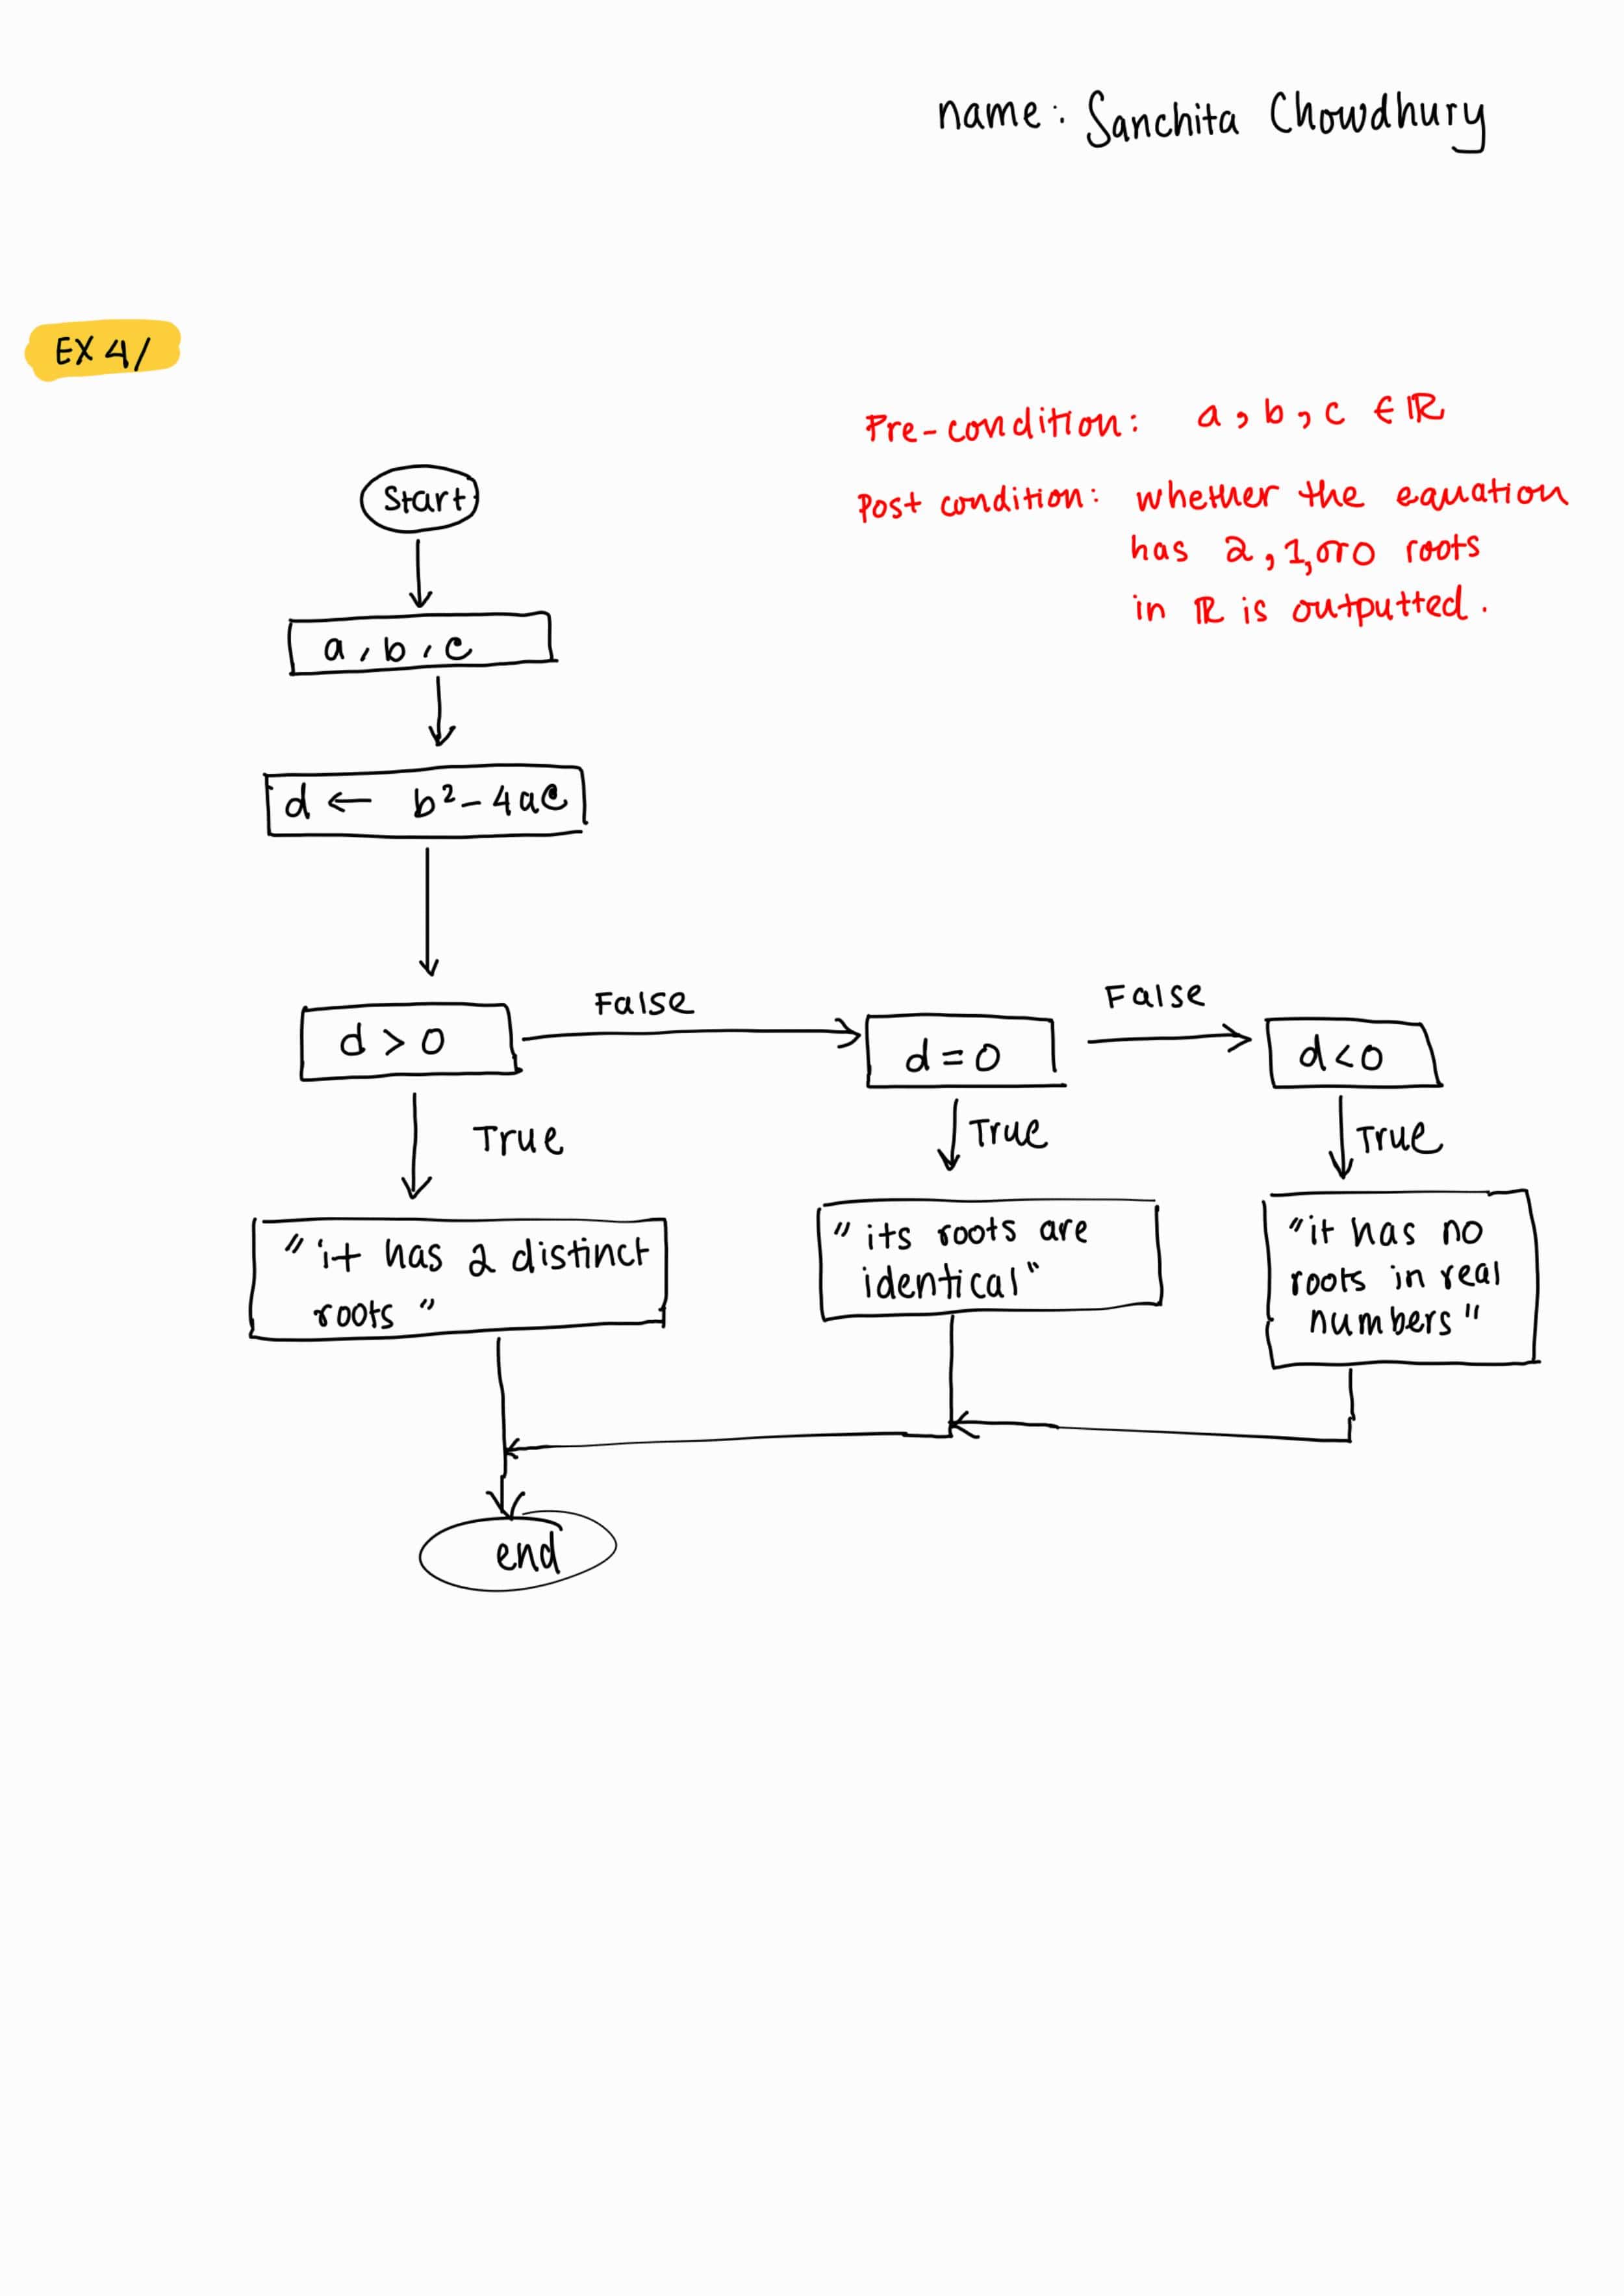 name: Sanchita Chowdhury
EX 4/
Pre-condition: a, b, c ∈ ℝ
Post condition: whether the equation
has 2, 1, or 0 roots
in ℝ is outputted.
Start
a, b, c
d ← b² - 4ac
d > 0
False
d = 0
False
d < 0
True
True
True
"it has 2 distinct
roots"
"its roots are
identical"
"it has no
roots in real
numbers"
end